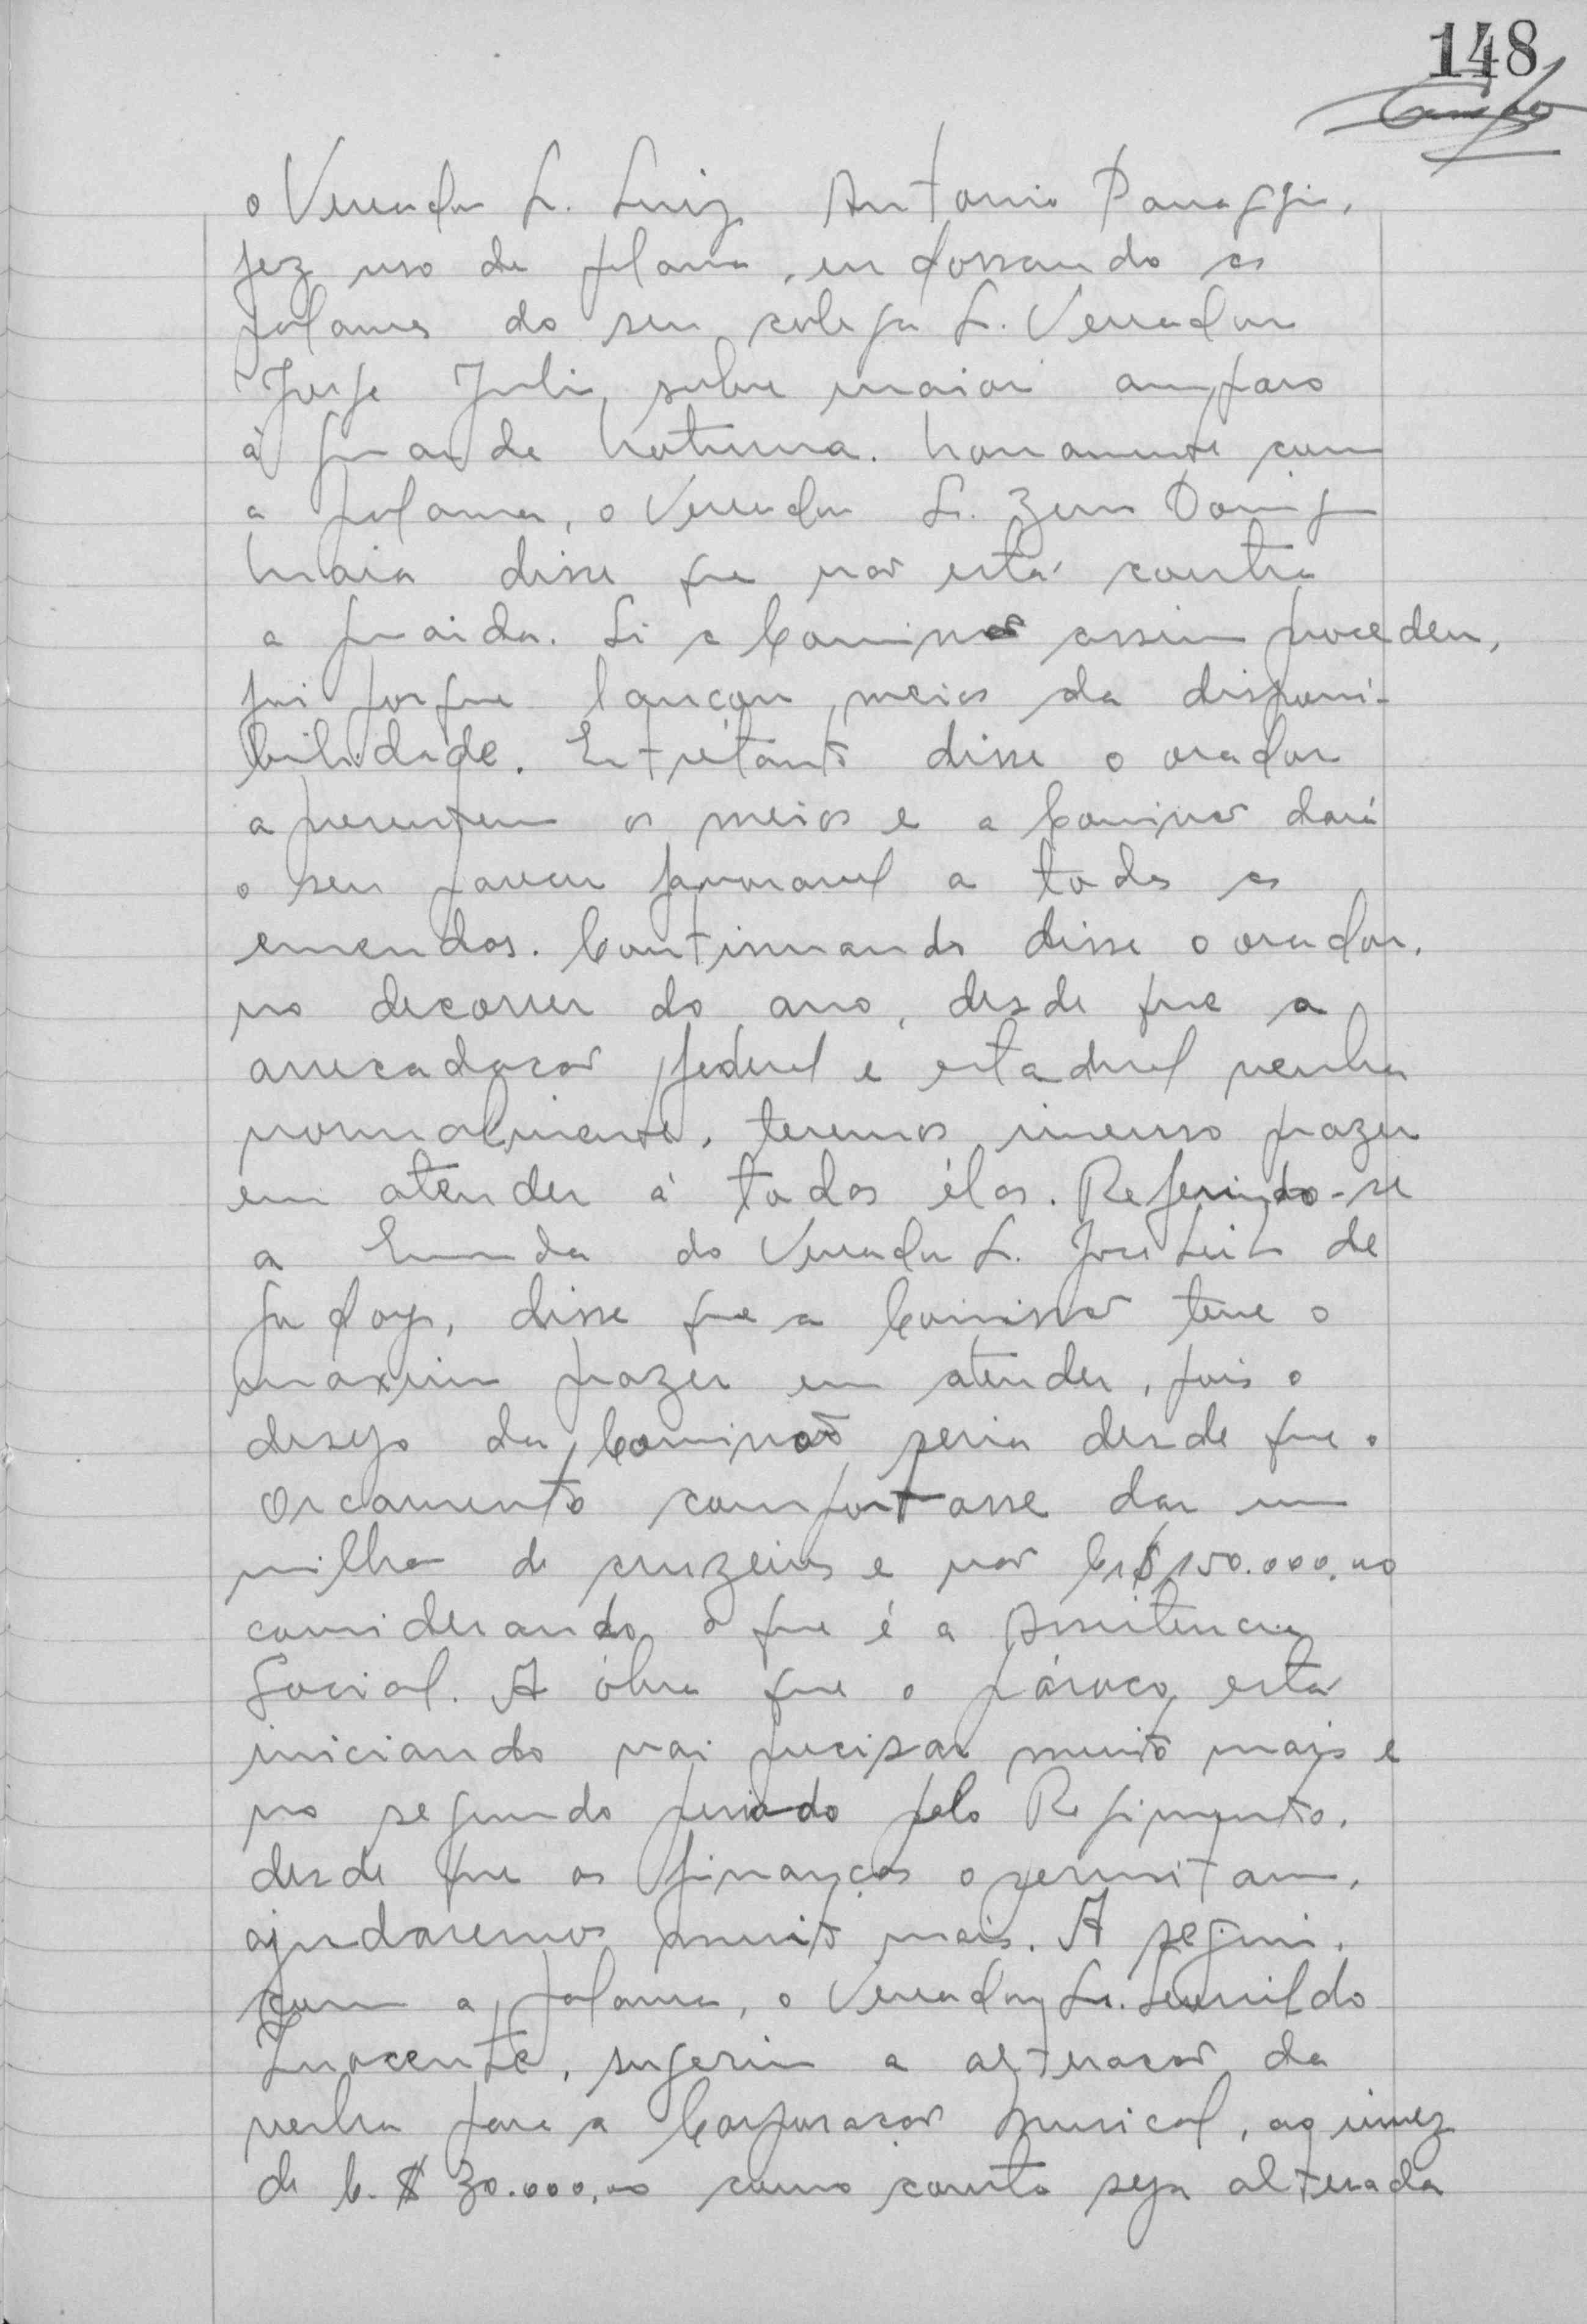 148
o Vereador Sr. Luiz Antonio Panaggio,
fez uso da palavra, endossando as
palavras do seu colega Sr. Vereador
Jorge Juli, sobre maior amparo
à guarda Noturna. Novamente com
a palavra, o Vereador Sr. Zeno
Maia disse que não está contra
a guarda. Si a Comissão assim procedeu,
foi porque lançou meios da disponi-
bilidade. Entretanto disse o orador
apresentem os meios e a Comissão dará
o seu parecer favoravel a todas as
emendas. Continuando disse o orador,
no decorrer do ano, desde que a
arrecadação federal e estadual venha
normalmente, teremos imenso prazer
em atender á todas élas. Referindo-se
a Emenda do Vereador Sr. José Leite de
Godoy, disse que a Comissão teve o
maximo prazer em atender, pois o
desejo da Comissão seria desde que o
Orçamento comportasse dar um
milhão de cruzeiros e não Cr$ 150.000,00
considerando o que é a Assitencia
Social. A óbra que o pároco está
iniciando vai precisar muito mais e
no segundo periodo pelo Regimento,
desde que as finanças o permitam,
ajudaremos muito mais. A seguir,
com a palavra, o Vereador Sr. Leonildo
Inocente, sugeriu a alteração da
verba para a Corporação Musical, ao invez
de C.$ 30.000,00 como consta seja alterada